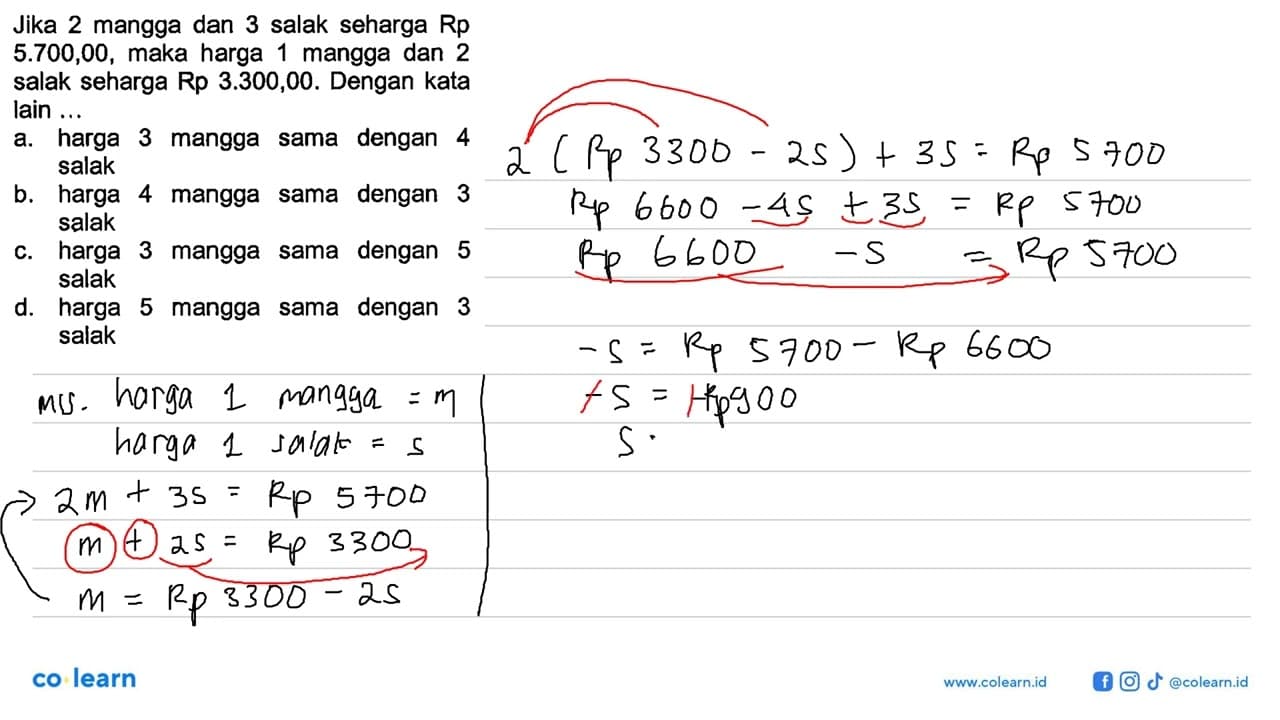 Jika 2 mangga dan 3 salak seharga Rp
5.700,00, maka harga 1 mangga dan 2
salak seharga Rp 3.300,00. Dengan kata
lain ...
a. harga 3 mangga sama dengan 4
salak
b. harga 4 mangga sama dengan 3
salak
c. harga 3 mangga sama dengan 5
salak
d. harga 5 mangga sama dengan 3
salak
mis. harga 1 mangga = m
harga 1 salak = s
2m + 3s = Rp 5700
m + 2s = Rp 3300
m = Rp 3300 - 2s
2 (Rp 3300 - 2s) + 3s = Rp 5700
Rp 6600 - 4s + 3s = Rp 5700
Rp 6600 - s = Rp 5700
- s = Rp 5700 - Rp 6600
- s = - Rp 900
s
co learn
www.colearn.id
@colearn.id